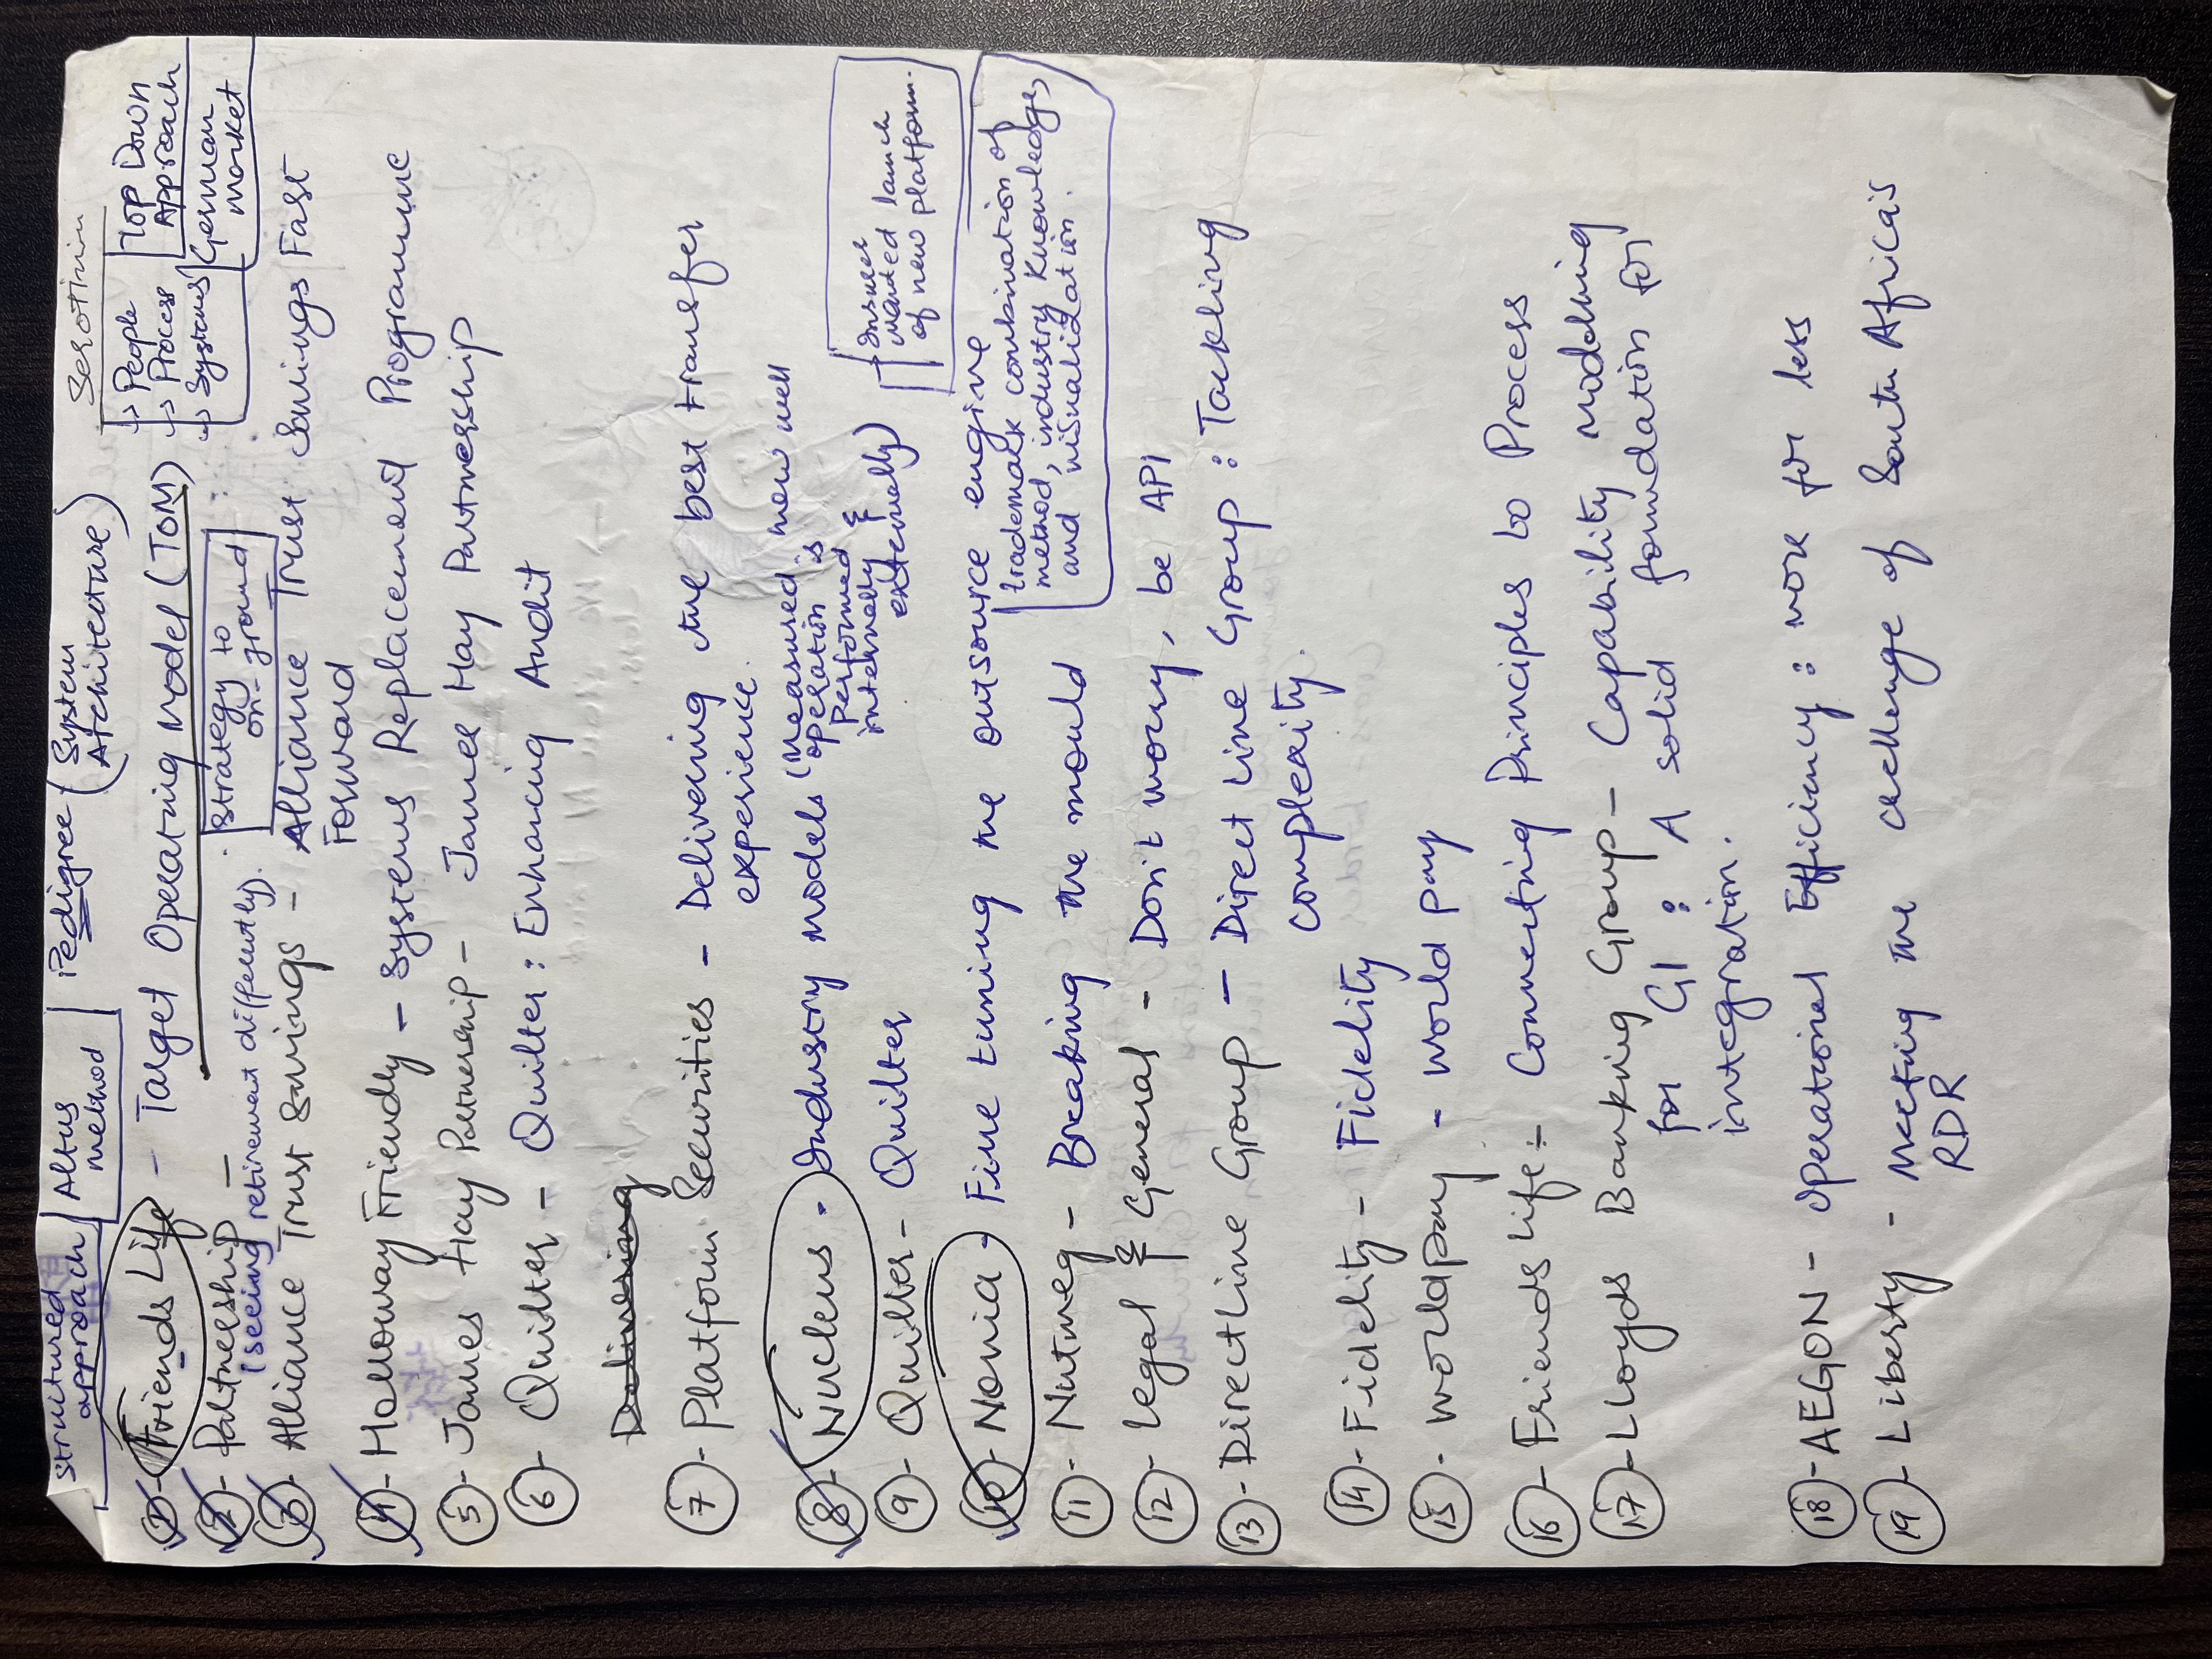 Structured approach
Altus method
Pedigree (System Architecture)
Serotinin
→ People
→ Process
→ Systems
Top Down Approach
German market
① - Friends Life - Target Operating Model (TOM)
② - Partnership -
(seeing retirement differently).
strategy to on-ground
③ - Alliance Trust Savings - Alliance Trust Savings Fast
Forward
④ - Holloway Friendly - Systems Replacement Programme
⑤ - James Hay Partnership - James Hay Partnership
⑥ - Quilter - Quilter: Enhancing Audit
Delivering
⑦ - Platform Securities - Delivering the best transfer
experience.
⑧ - Nucleus - Industry Models (Measured. how well
operation is
Performed
internally &
externally)
Insurer
wanted launch
of new platform.
⑨ - Quilter - Quilter
⑩ - Novia - Fine tuning the outsource engine
trademark combination of
method, industry knowledges
and visualization.
⑪ - Nutmeg - Breaking the mould
⑫ - Legal & General - Don't worry, be API
⑬ - DirectLine Group - Direct Line Group: Tackling
complexity.
⑭ - Fidelity - Fidelity
⑮ - Worldpay - World pay
⑯ - Friends Life - Converting Principles to Process
⑰ - Lloyds Banking Group - Capability Modelling
for GI: A solid foundation for
integration.
⑱ - AEGON - Operational Efficiency: more for less
⑲ - Liberty - Meeting the challenge of South Africa's
RDR